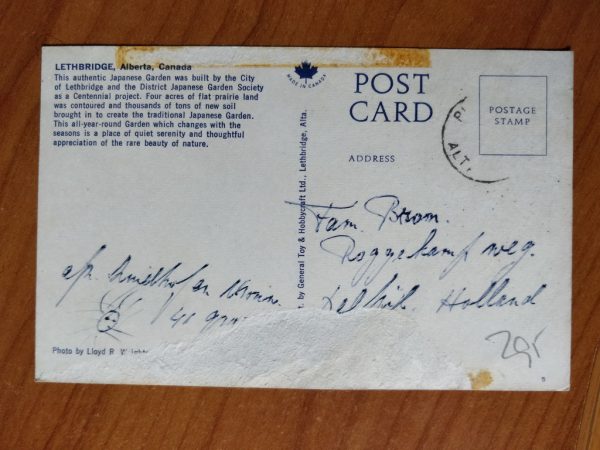 LETHBRIDGE, Alberta, Canada
This authentic Japanese Garden was built by the City
of Lethbridge and the District Japanese Garden Society
as a Centennial project. Four acres of flat prairie land
was contoured and thousands of tons of new soil
brought in to create the traditional Japanese Garden.
This all-year-round Garden which changes with the
seasons is a place of quiet serenity and thoughtful
appreciation of the rare beauty of nature.
MADE IN CANADA
POST
CARD
ADDRESS
POSTAGE
STAMP
ALT
by General Toy & Hobbycraft Ltd., Lethbridge, Alta.
Fam. Brom.
Roggekamp weg.
Holland
Photo by Lloyd R.